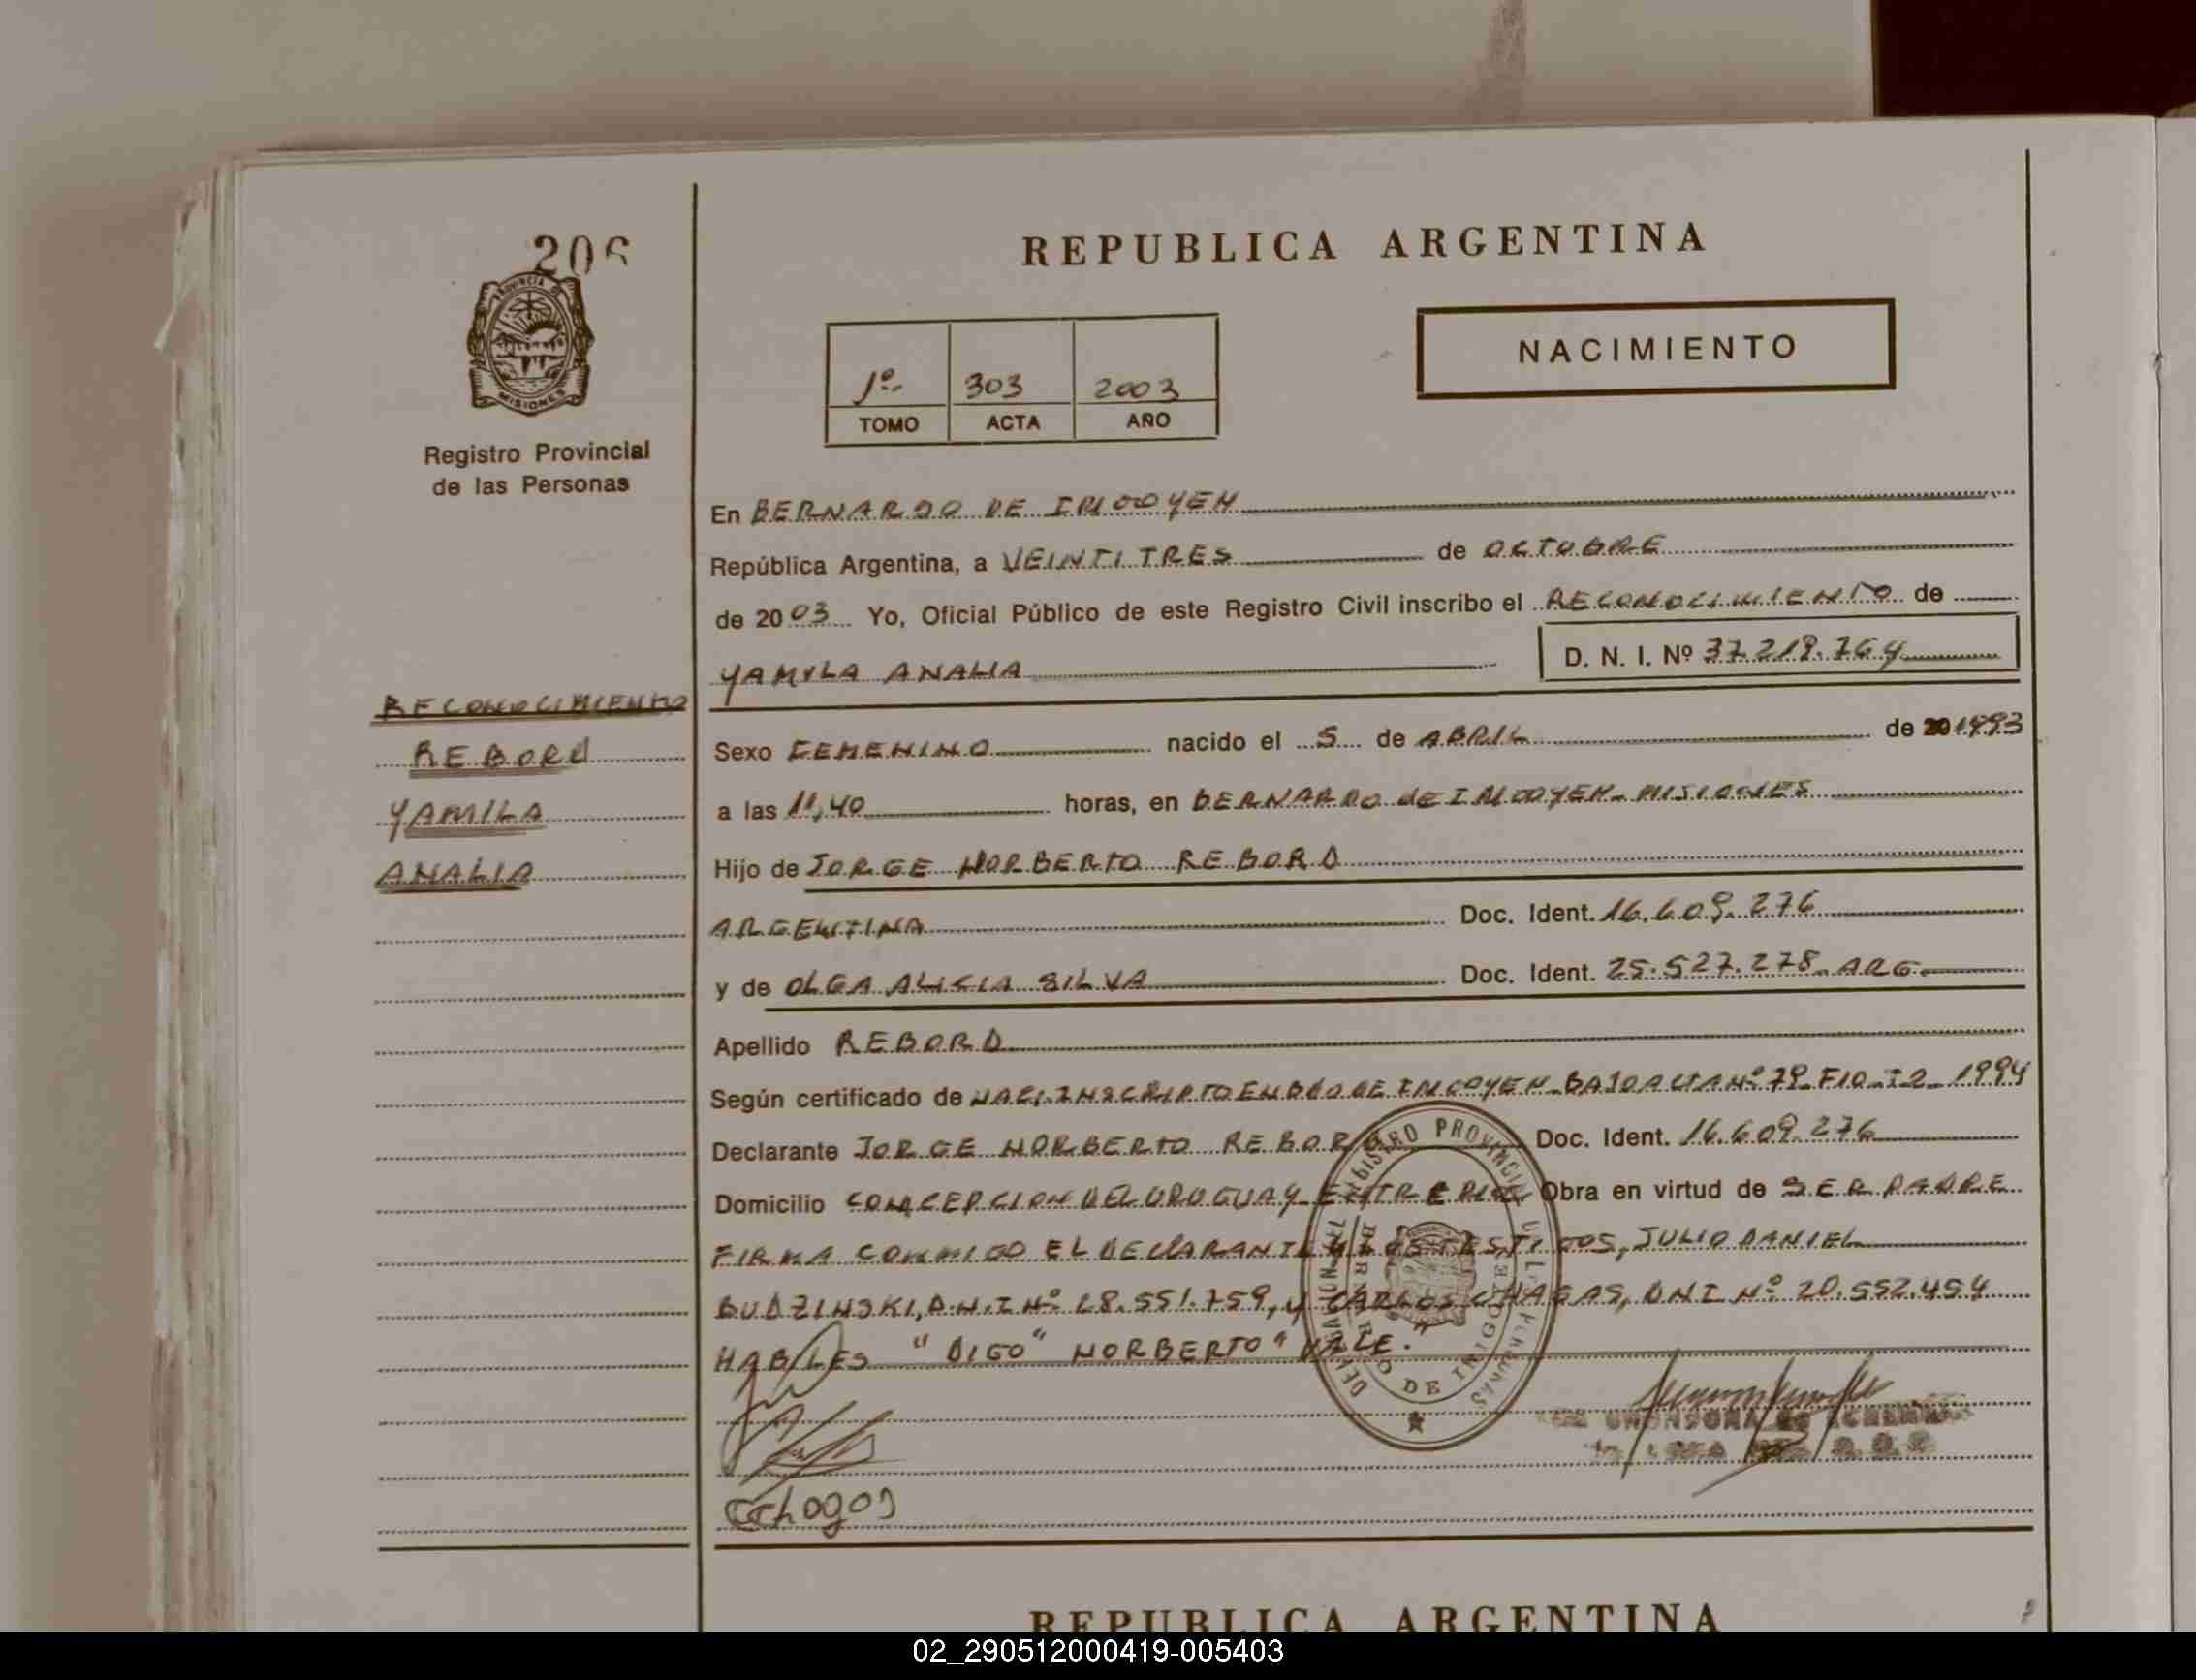 206
PROVINCIA DE
MISIONES
Registro Provincial
de las Personas
REPUBLICA ARGENTINA
1º 303 2003
TOMO ACTA AÑO
NACIMIENTO
En BERNARDO DE IRIGOYEN
República Argentina, a VEINTITRES de OCTUBRE
de 2003 Yo, Oficial Público de este Registro Civil inscribo el RECONOCIMIENTO de
YAMILA ANALIA D. N. I. Nº 37.219.764
RECONOCIMIENTO
REBORD
YAMILA
ANALIA
Sexo FEMENINO nacido el 5 de ABRIL de 20 1993
a las 11,40 horas, en BERNARDO de IRIGOYEN - MISIONES
Hijo de JORGE NORBERTO REBORD
ARGENTINA Doc. Ident. 16.609.276
y de OLGA ALICIA SILVA Doc. Ident. 25.527.278 ARG
Apellido REBORD
Según certificado de NACI. INSCRIPTO EN BDO DE IRIGOYEN BAJO ACTA Nº 79 F10 T2 1994
Declarante JORGE NORBERTO REBORD Doc. Ident. 16.609.276
Domicilio CONCEPCION DEL URUGUAY ENTRE RIOS Obra en virtud de SER PADRE
FIRMA CONMIGO EL DECLARANTE Y LOS TESTIGOS, JULIO DANIEL
BUDZINSKI, D.N.I Nº 28.551.759, y CARLOS CHAGAS, DNI Nº 20.552.454
HABILES "DIGO" NORBERTO" VALE.
REGISTRO PROVINCIAL DE LAS PERSONAS
DELEGACION
BERNARDO DE IRIGOYEN
Cchagas
REPUBLICA ARGENTINA
02_290512000419-005403